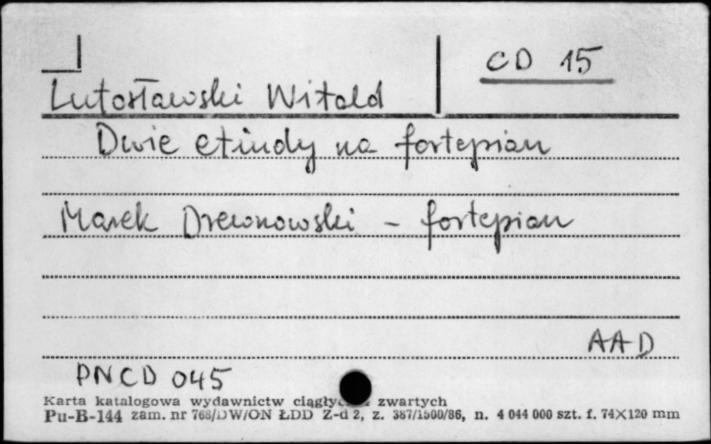 CD 15
Lutosławski Witold
Dwie etiudy na fortepian
Marek Drewnowski – fortepian
AAD
PNCD 045
Karta katalogowa wydawnictw zwartych
Pu-B-144 zam. nr 768/DW/ON ŁDD Z-d 2, z. 387/1500/86, n. 4 044 000 szt. f. 74×120 mm